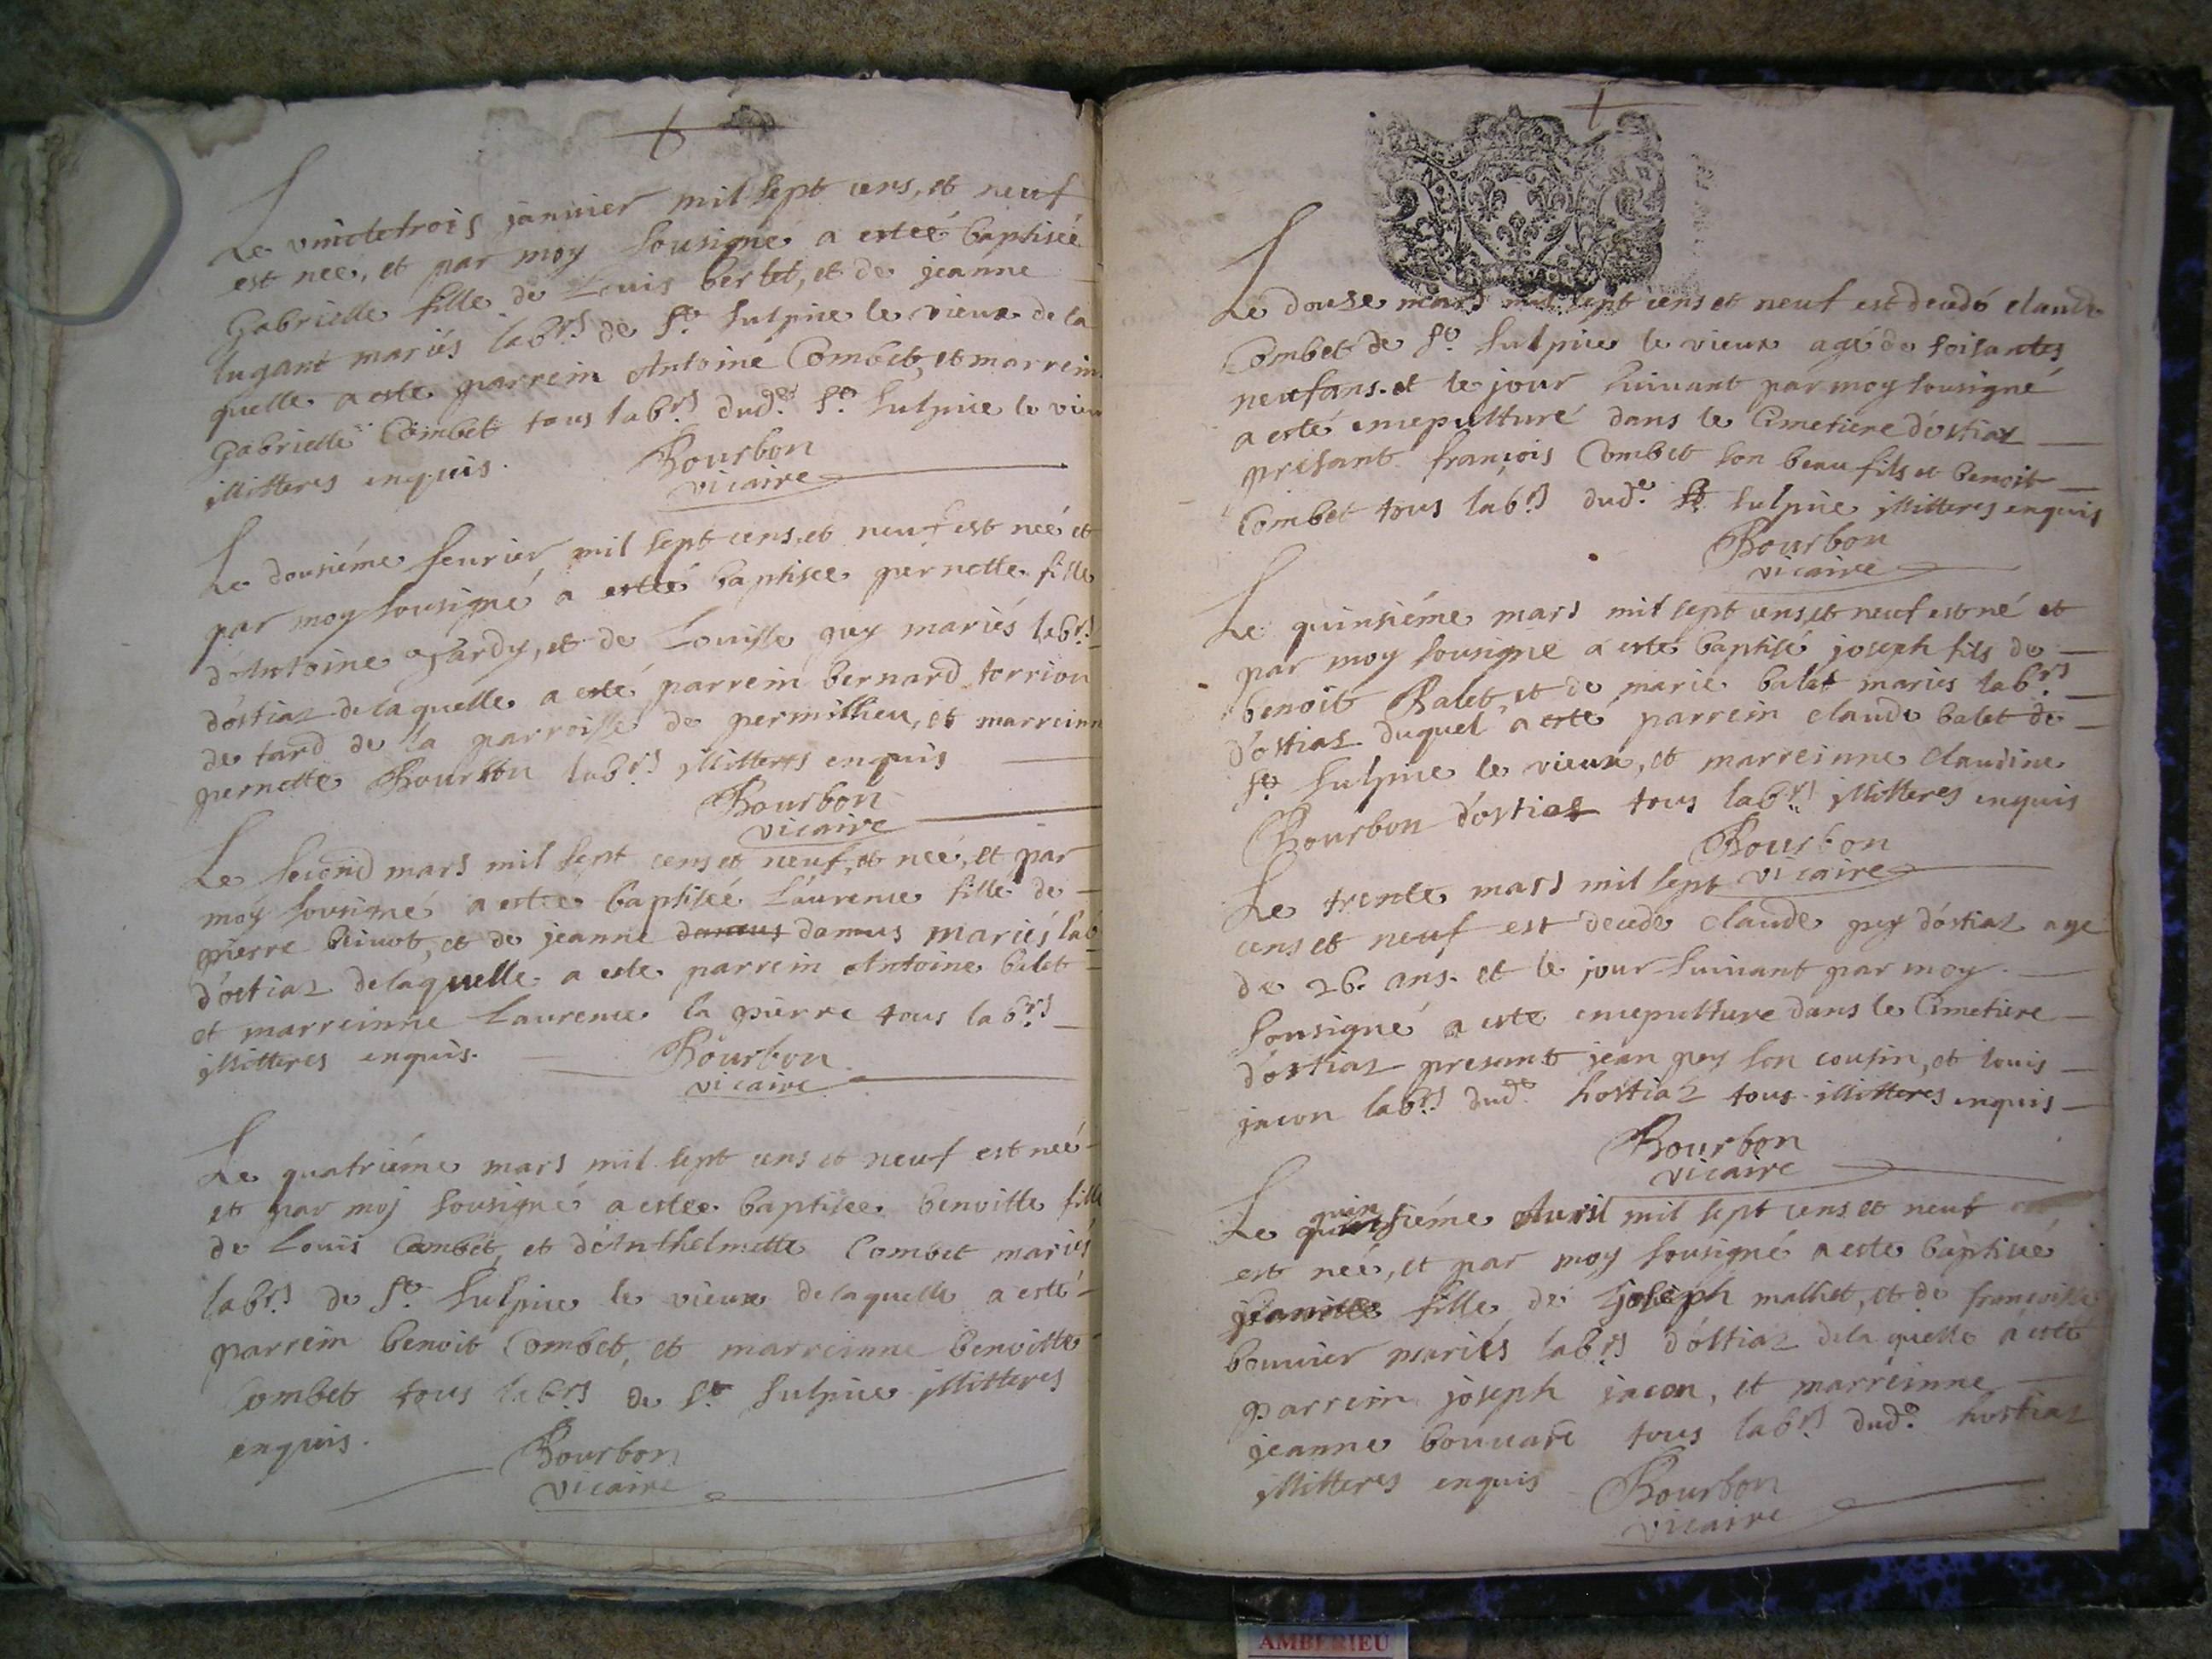 Le vinctetrois janvier mil sept cens, et neuf
est neé, et par moy sousigné a esteé baptiseé
Gabrielle fille de Louis berlet, et de jeanne
lugant mariés labrs de St. Sulpice le vieux de la
quelle a esté parrein Antoine Combet, et marrein
Gabrielle Combet tous labrs dudt. St. Sulpice le vieu
illitteres enquis.
Bourbon
vicaire
Le dousiéme feurier mil sept cens, et neuf est neé et
par moy sousigné a esteé baptiseé pernette fille
d'Antoine, et de Louisse guy mariés labrs
d'ostiaz de laquelle a esté parrein bernard torrion
de tard de la parroisse de permillieu, et marreinn
pernette Bourbon labrs illitteres enquis
Bourbon
vicaire
Le second mars mil sept cens et neuf, et neé, et par
moy sousigné a esteé baptiseé Laurence fille de
pierre, et de jeanne damus damus mariés lab
d'ostiaz de laquelle a esté parrein Antoine balet
et marreinne Laurence la pierre tous labrs
illitteres enquis.
Bourbon
vicaire
Le quatriéme mars mil sept cens et neuf est neé
et par moj sousigné a esteé baptiseé benoitte fille
de Louis Combet, et d'Anthelmette Combet mariés
labrs de St. Sulpice le vieux de laquelle a esté
parrein benoit Combet, et marreinne benoitte
Combet tous labrs de St. Sulpice illitteres
enquis.
Bourbon
vicaire
Le douse mars mil sept cens et neuf est decedé claude
Combet de St. Sulpice le vieux agé de soisantes
neuf ans. et le jour suivant par moy sousigné
a esté ensepulturé dans le Cimetiere d'ostiaz
presant françois Combet son beau fils et benoit
Combet tous labrs dudt. St Sulpice illitteres enquis
Bourbon
vicaire
Le quinsiéme mars mil sept cens, et neuf est né et
par moy sousigné a esté baptisé joseph fils de
benoit Balet, et de marie balet mariés labrs
d'ostiaz duquel a esté parrein claude balet de
St. Sulpice le vieux, et marreinne Claudine
Bourbon d'ostiaz tous labrs illitteres enquis
Bourbon
vicaire
Le trente mars mil sept
cens et neuf est decedé Claude guy d'ostiaz agé
de 26. ans. et le jour suivant par moy
sousigné a esté ensepulture dans le Cimetiere
d'ostiaz present jean guy son cousin, et louis
jacon labrs dudt. hostiaz tous illitteres enquis
Bourbon
vicaire
Le quinsiéme Auril mil sept cens et neuf
est neé, et par moy sousigné a esté baptiseé
fille de joseph mallet, et de françoisse
bouuier mariés labrs d'ostiaz de la quelle a esté
parrein joseph jacon, et marreinne
jeanne tous labrs dudt. hostiaz
illitteres enquis
Bourbon
vicaire
AMBERIEU